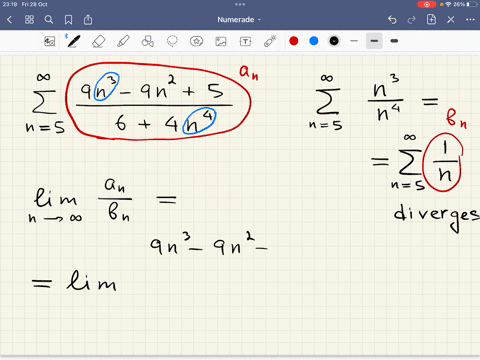 23:19 Fri 28 Oct
26%
Numerade
∞ ∑ n=5 (9n³ - 9n² + 5)/(6 + 4n⁴) aₙ
∞ ∑ n=5 n³/n⁴ =
= ∞ ∑ n=5 1/n bₙ
diverges
lim n→∞ aₙ/bₙ =
= lim 9n³ - 9n² -